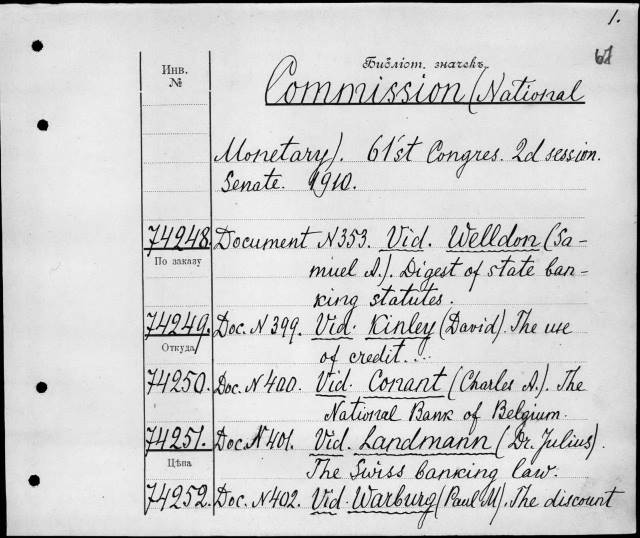 1.
Инв.
№
Библіот. значекъ
Commission (National
Monetary). 61st Congres. 2d session.
Senate. 1910.
74248. Document N353. Vid. Welldon (Sa-
По заказу
muel A.). Digest of state ban-
king statutes.
74249. Doc. N399. Vid. Kinley (David). The use
Откуда
of credit...
74250. Doc. N400. Vid. Conant (Charles A.). The
National Bank of Belgium.
74251. Doc. N401. Vid. Landmann (Dr. Julius).
Цѣна
The Swiss banking law.
74252. Doc. N402. Vid. Warburg (Paul M). The discount